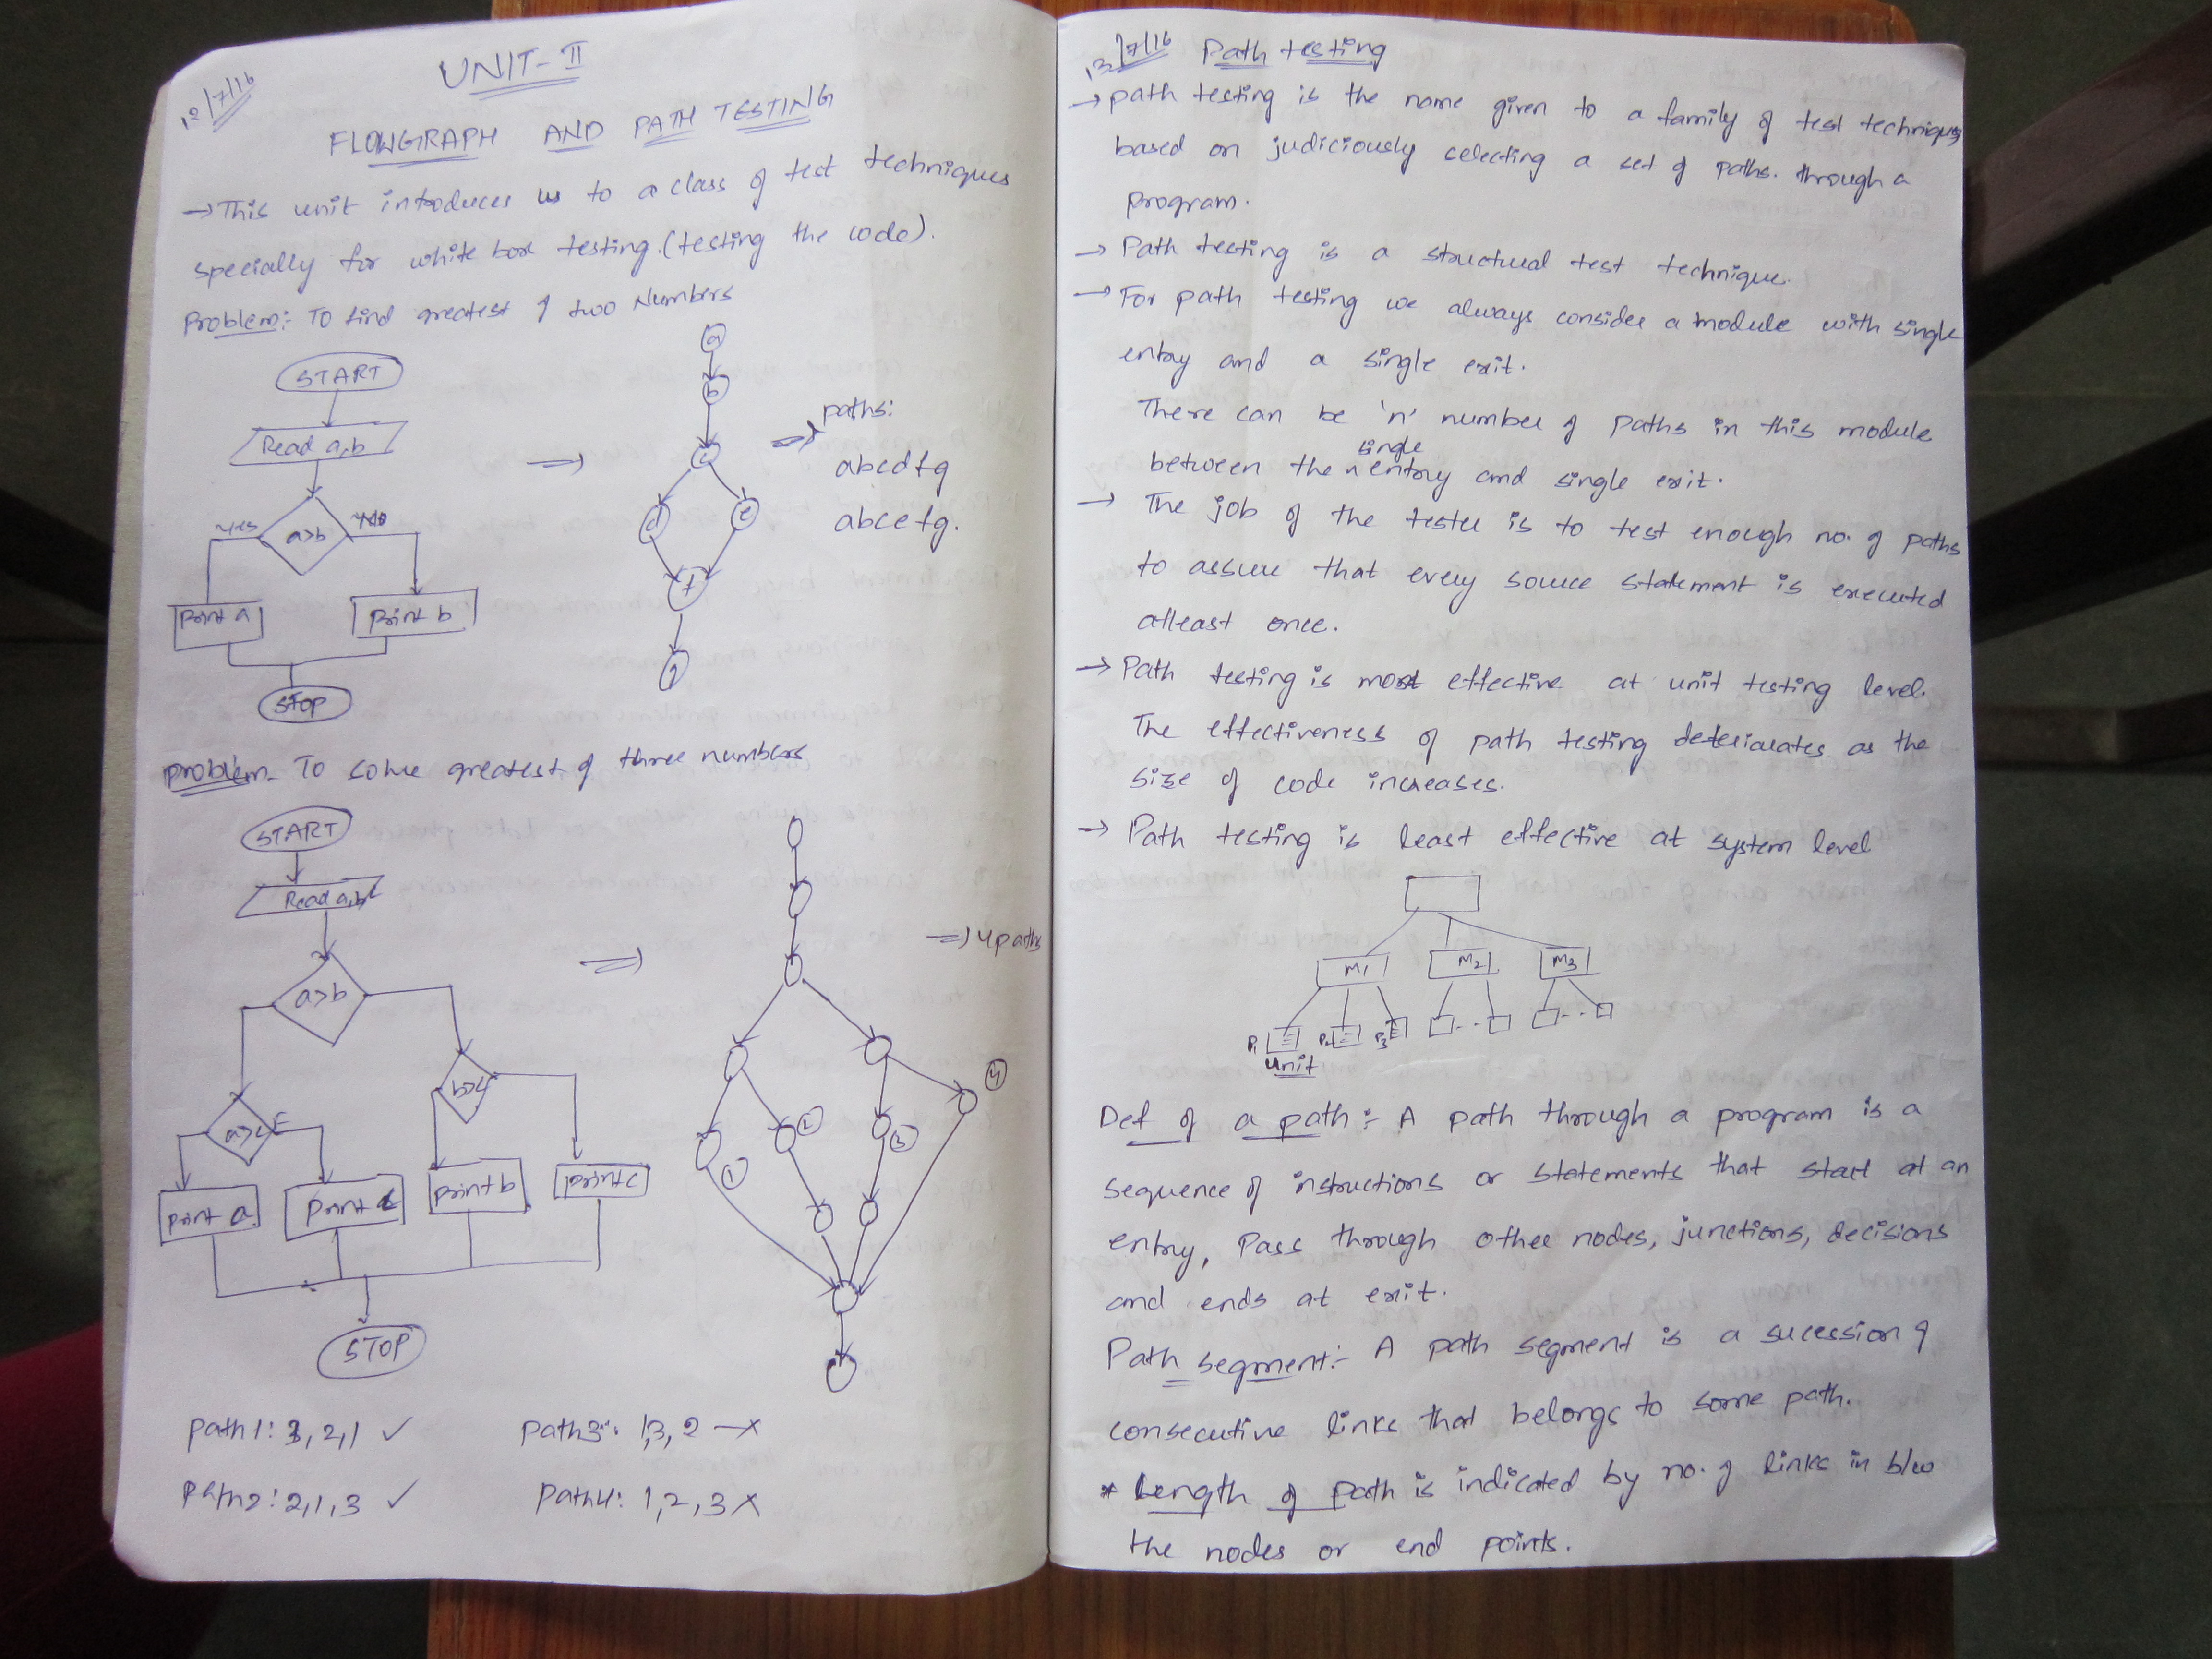 UNIT-II
FLOWGRAPH AND PATH TESTING
→ This unit introduces us to a class of test techniques
specially for white box testing (testing the code).
Problem: To find greatest of two Numbers
START
Read a,b
a>b
yes
NO
Print a
Print b
STOP
⇒
a
b
c
d
e
f
g
⇒ paths:
abcdfg
abcefg.
Problem- To solve greatest of three numbers
START
Read a,b,c
a>b
a>c
F
b>c
print a
print c
print b
print c
STOP
⇒
⇒ 4 paths
1
2
3
4
Path 1: 3,2,1 ✓
Path3: 1,3,2 — x
Path2: 2,1,3 ✓
Path4: 1,2,3 x
Path testing
→ path testing is the name given to a family of test techniques
based on judiciously selecting a set of paths through a
program.
→ Path testing is a structural test technique.
→ For path testing we always consider a module with single
entry and a single exit.
There can be 'n' number of paths in this module
between the single entry and single exit.
→ The job of the tester is to test enough no. of paths
to assure that every source statement is executed
atleast once.
→ Path testing is most effective at unit testing level.
The effectiveness of path testing deteriorates as the
size of code increases.
→ Path testing is least effective at system level
M1
M2
M3
P1
P2
P3
unit
Def of a path :- A path through a program is a
sequence of instructions or statements that start at an
entry, Pass through other nodes, junctions, decisions
and ends at exit.
Path segment:- A path segment is a sucession of
consecutive links that belongs to some path.
* Length of Path is indicated by no. of links in b/w
the nodes or end points.